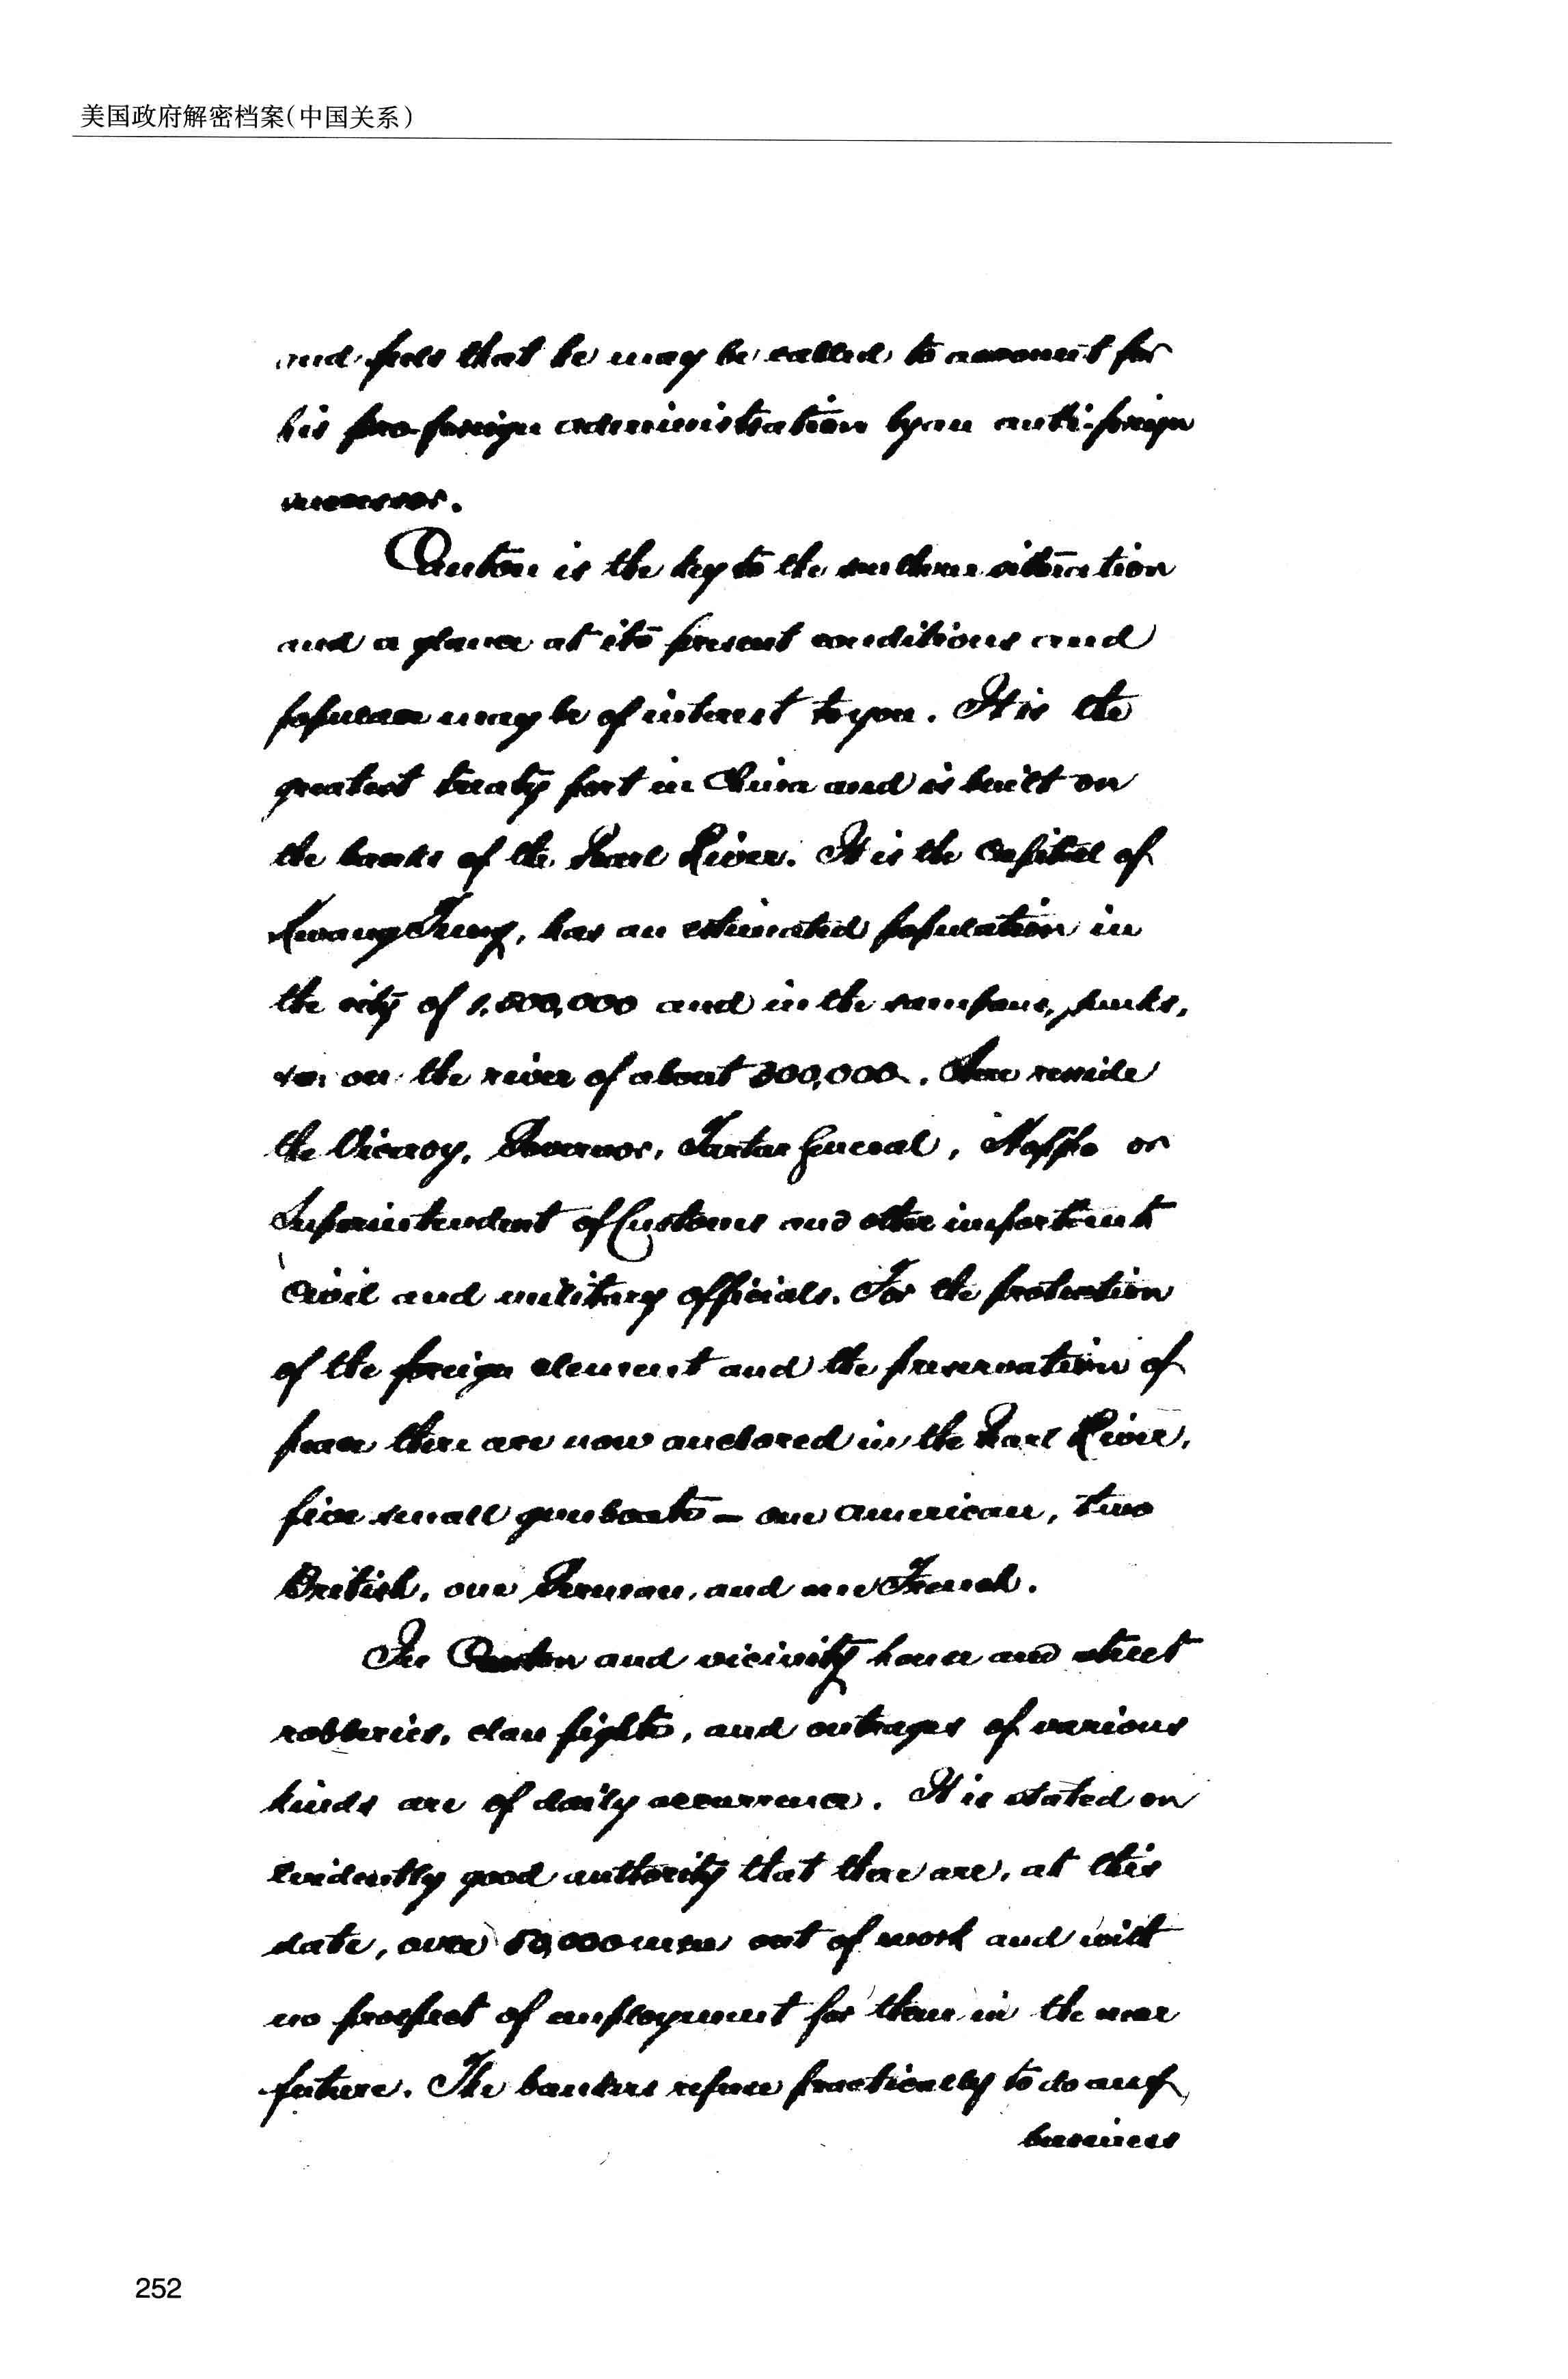 美国政府解密档案(中国关系)
and feels that he may be called to account for
his pro-foreign administration by an anti-foreign
successor.
Canton is the key to the southern situation
and a glance at its present conditions and
populace may be of interest to you. It is the
greatest treaty port in China and is built on
the banks of the Pearl River. It is the Capital of
Kwang Tung, has an estimated population in
the city of 1,800,000 and in the sampans, junks,
&c. on the river of about 300,000. Here reside
the Viceroy, Governor, Tartar General, Hoppo or
Superintendent of Customs and other important
Civil and military officials. For the protection
of the foreign element and the preservation of
peace there are now anchored in the Pearl River,
five small gunboats – one American, two
British, one German, and one French.
In Canton and vicinity house and street
robberies, clan fights, and outrages of various
kinds are of daily occurrence. It is stated on
evidently good authority that there are, at this
date, over 50,000 men out of work and with
no prospect of employment for them in the near
future. The bankers refuse practically to do any
business
252